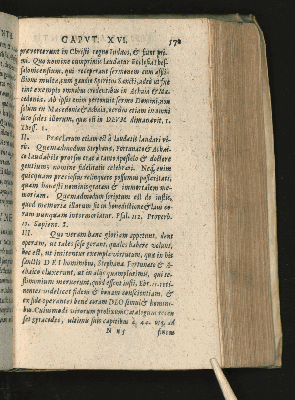 CAPVT. XVI.
578
præverterunt in Christi regno Iudæos, & sunt pri-
mi. Quo nomine cumprimis laudatur Ecclesia Thes-
salonicensium, qui receperunt sermonem cum affli-
ctione multa, cum gaudio Spiritus Sancti, adeò ut fue-
rint exemplo omnibus credentibus in Achaia & Ma-
cedonia. Ab ipsis enim personuit sermo Domini, non
solum in Macedonia & Achaia, verùm etiam in omni
loco fides illorum, quæ est in DEVM dimanavit. 1.
Thess. 1.
II. Præclarum etiam est à laudatis laudari vi-
ris. Quemadmodum Stephanas, Fortunatus & Achai-
co laudabile prorsus erat à tanto apostolo & doctore
gentium nomine fidelitatis celebrari. Nec enim
quicquam preciosius relinquere possumus posteritati,
quam honesti nominis gratam & immortalem me-
moriam. Quemadmodum scriptum est de iustis,
quod memoria illorum sit in benedictione & laus eo-
rum nunquam intermoriatur. Psal. 112. Proverb.
10. Sapient. 8.
III. Qui veram hanc gloriam appetunt, dent
operam, ut tales sese gerant, quales haberi volunt,
hoc est, ut imitentur exempla virtutum, quæ in his
sanctis DEI hominibus, Stephana Fortunato & A-
chaico eluxerunt, ut in alijs quamplurimis, qui te-
stimonium meruerunt, quòd essent iusti, Ebr. 11. reti-
nentes videlicet fidem & bonam conscientiam, &
ex fide operantes bene coram DEO simul & homini-
bus. Cuiusmodi virorum prolixum Catalogum recen-
set syracodes, ultimis suis capitibus à 44. usq; ad
N n 5
finem